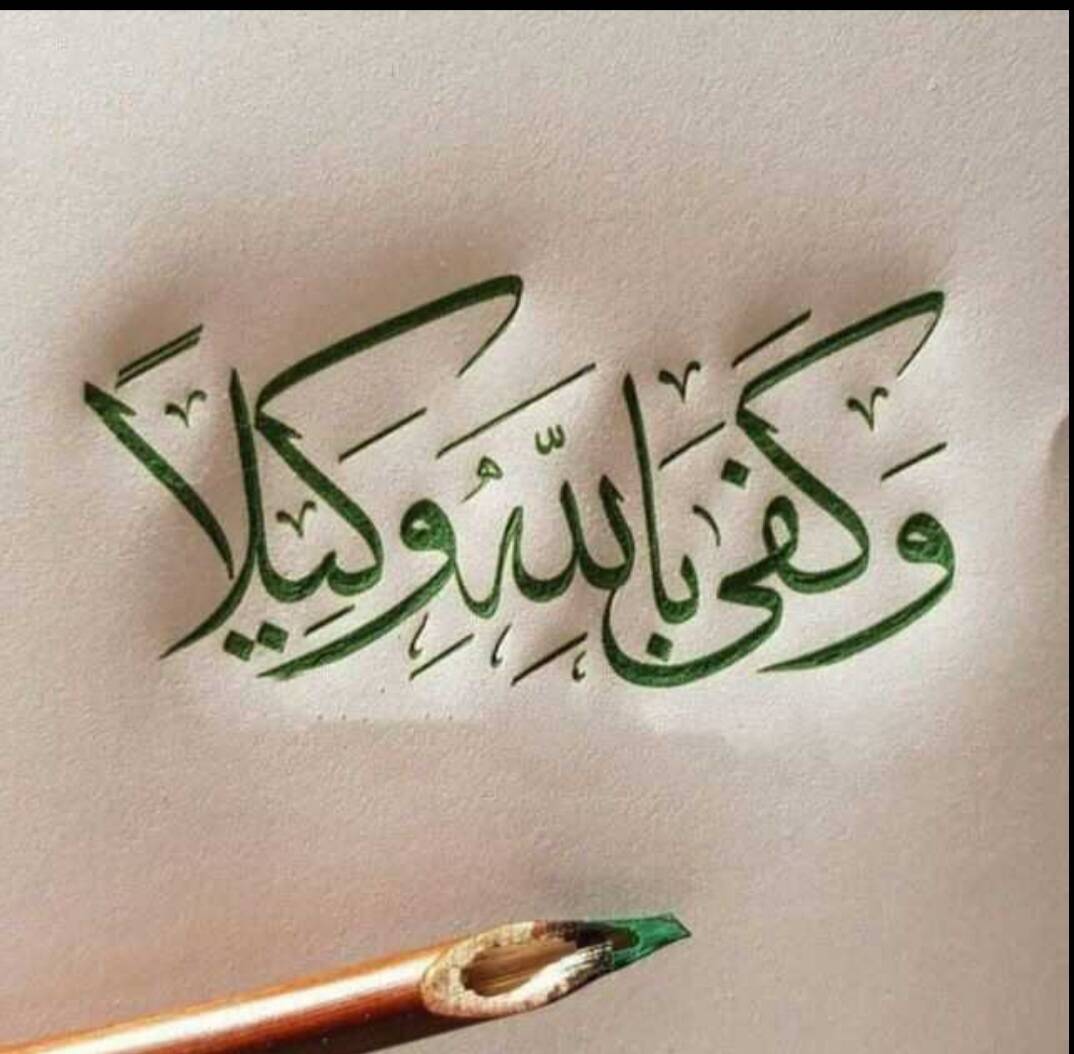 وَكَفَى بِاللَّهِ وَكِيلًا